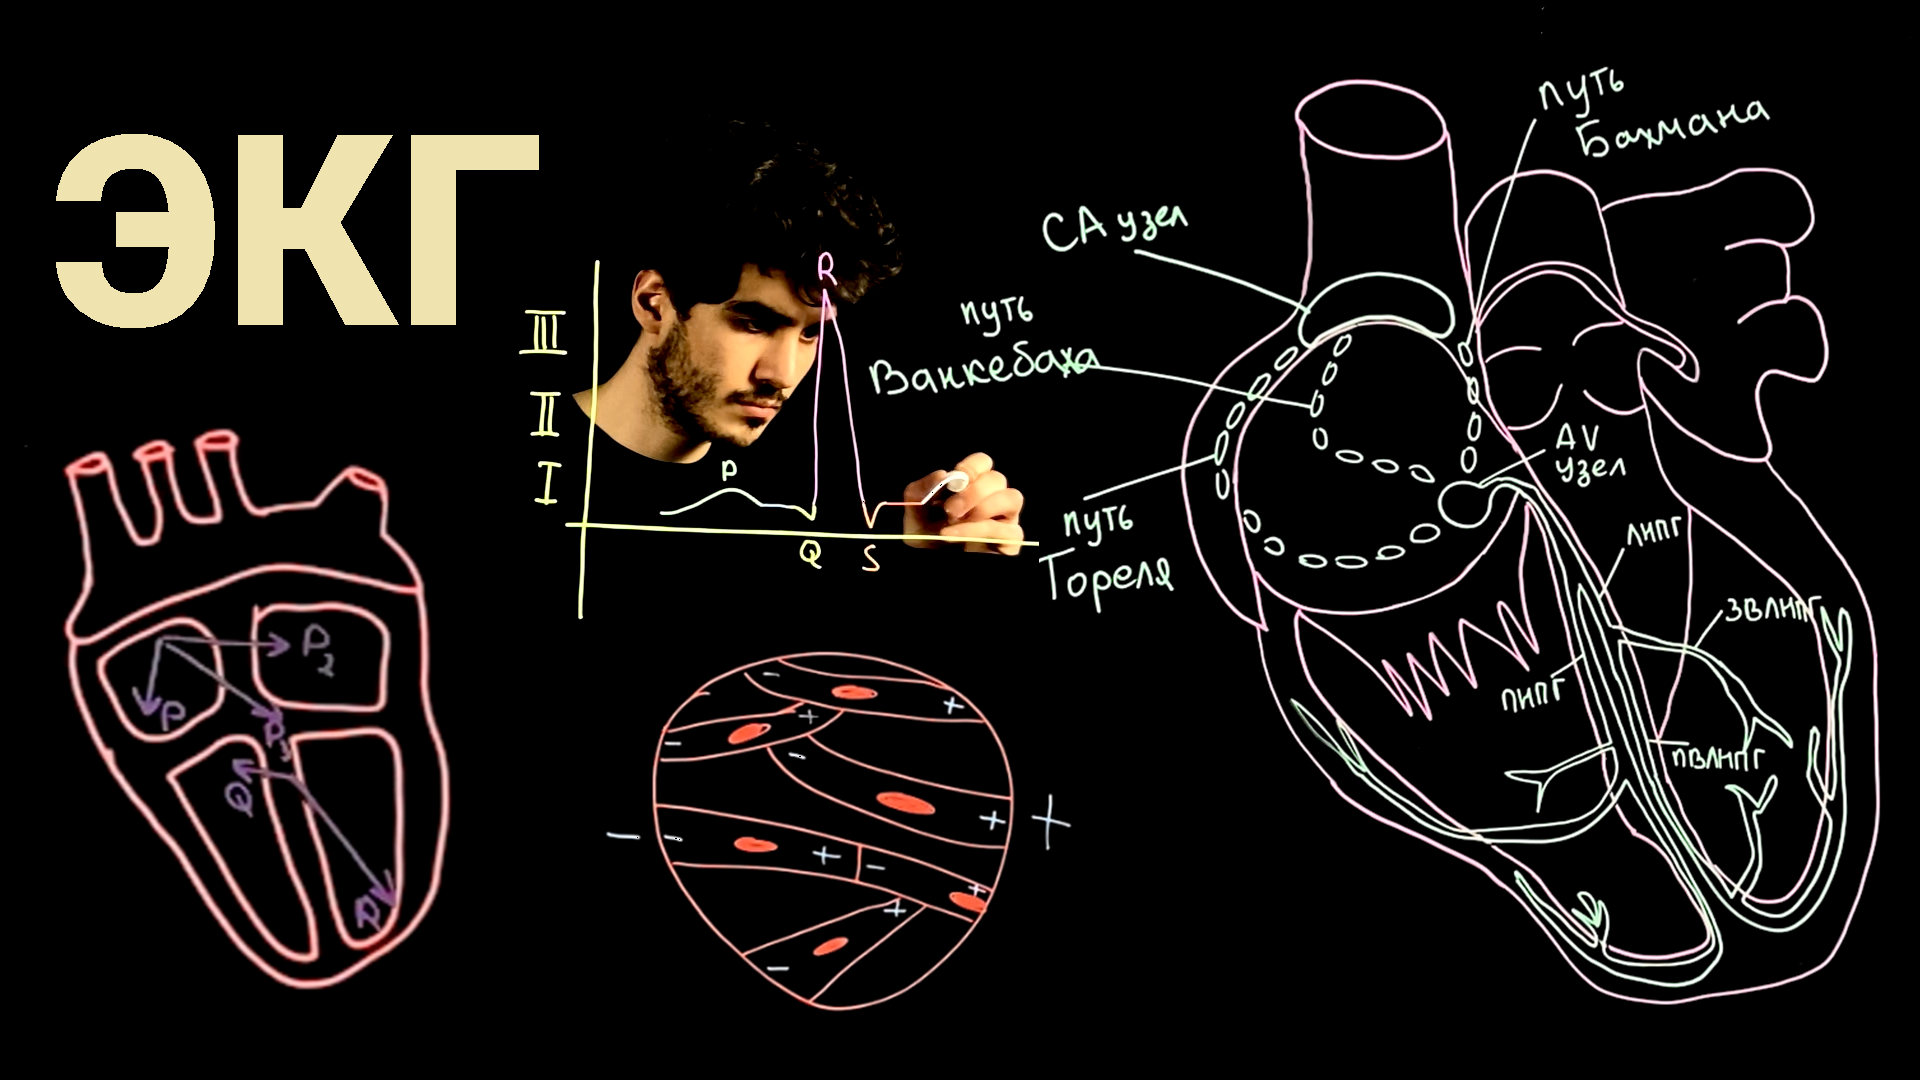 ЭКГ
III
II
I
P
R
Q
S
P
P2
P3
Q
R
−
+
−
+
−
+
−
+
−
+
−
+
+
−
−
+
путь
Бахмана
СА узел
путь
Ванкебаха
AV
узел
путь
Тореля
ЛНПГ
ЗВЛНПГ
ПНПГ
ПВЛНПГ